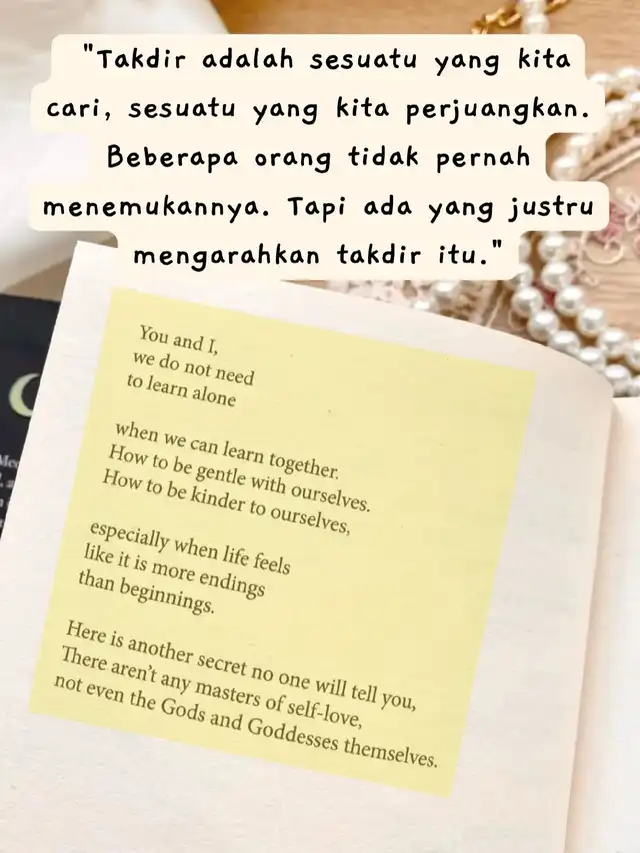 "Takdir adalah sesuatu yang kita
cari, sesuatu yang kita perjuangkan.
Beberapa orang tidak pernah
menemukannya. Tapi ada yang justru
mengarahkan takdir itu."
You and I,
we do not need
to learn alone
when we can learn together.
How to be gentle with ourselves.
How to be kinder to ourselves,
especially when life feels
like it is more endings
than beginnings.
Here is another secret no one will tell you,
There aren't any masters of self-love,
not even the Gods and Goddesses themselves.